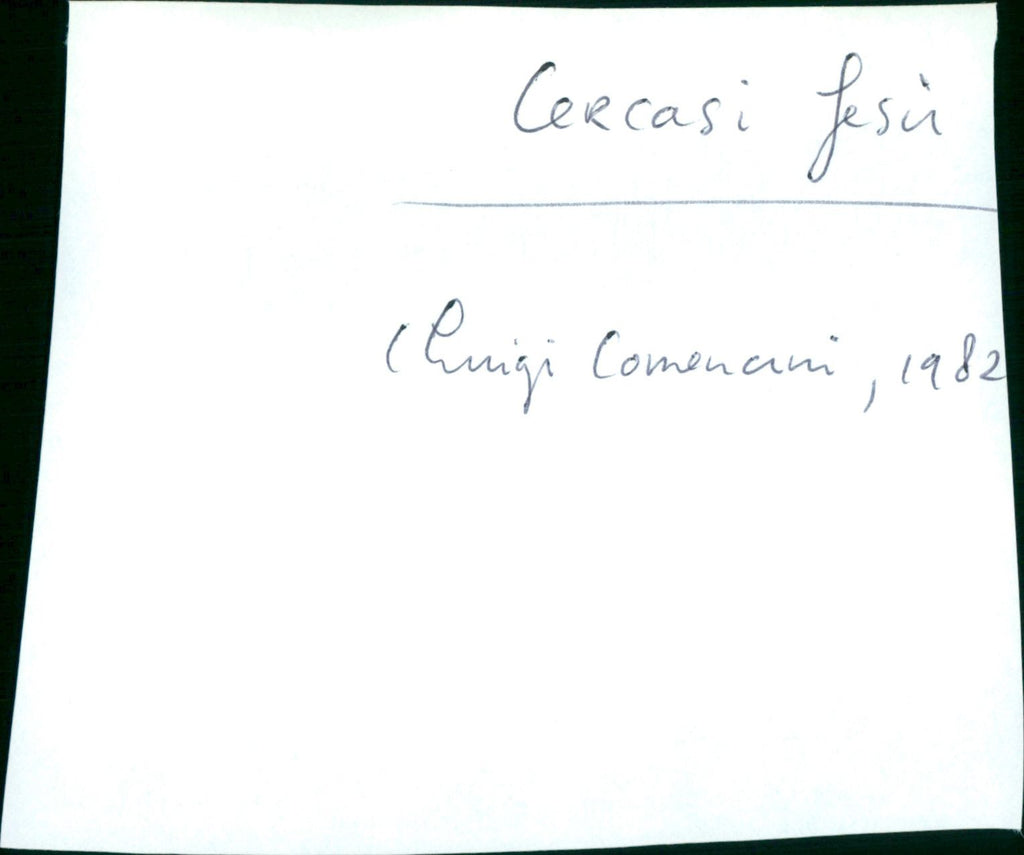 Cercasi Gesù
(Luigi Comencini, 1982